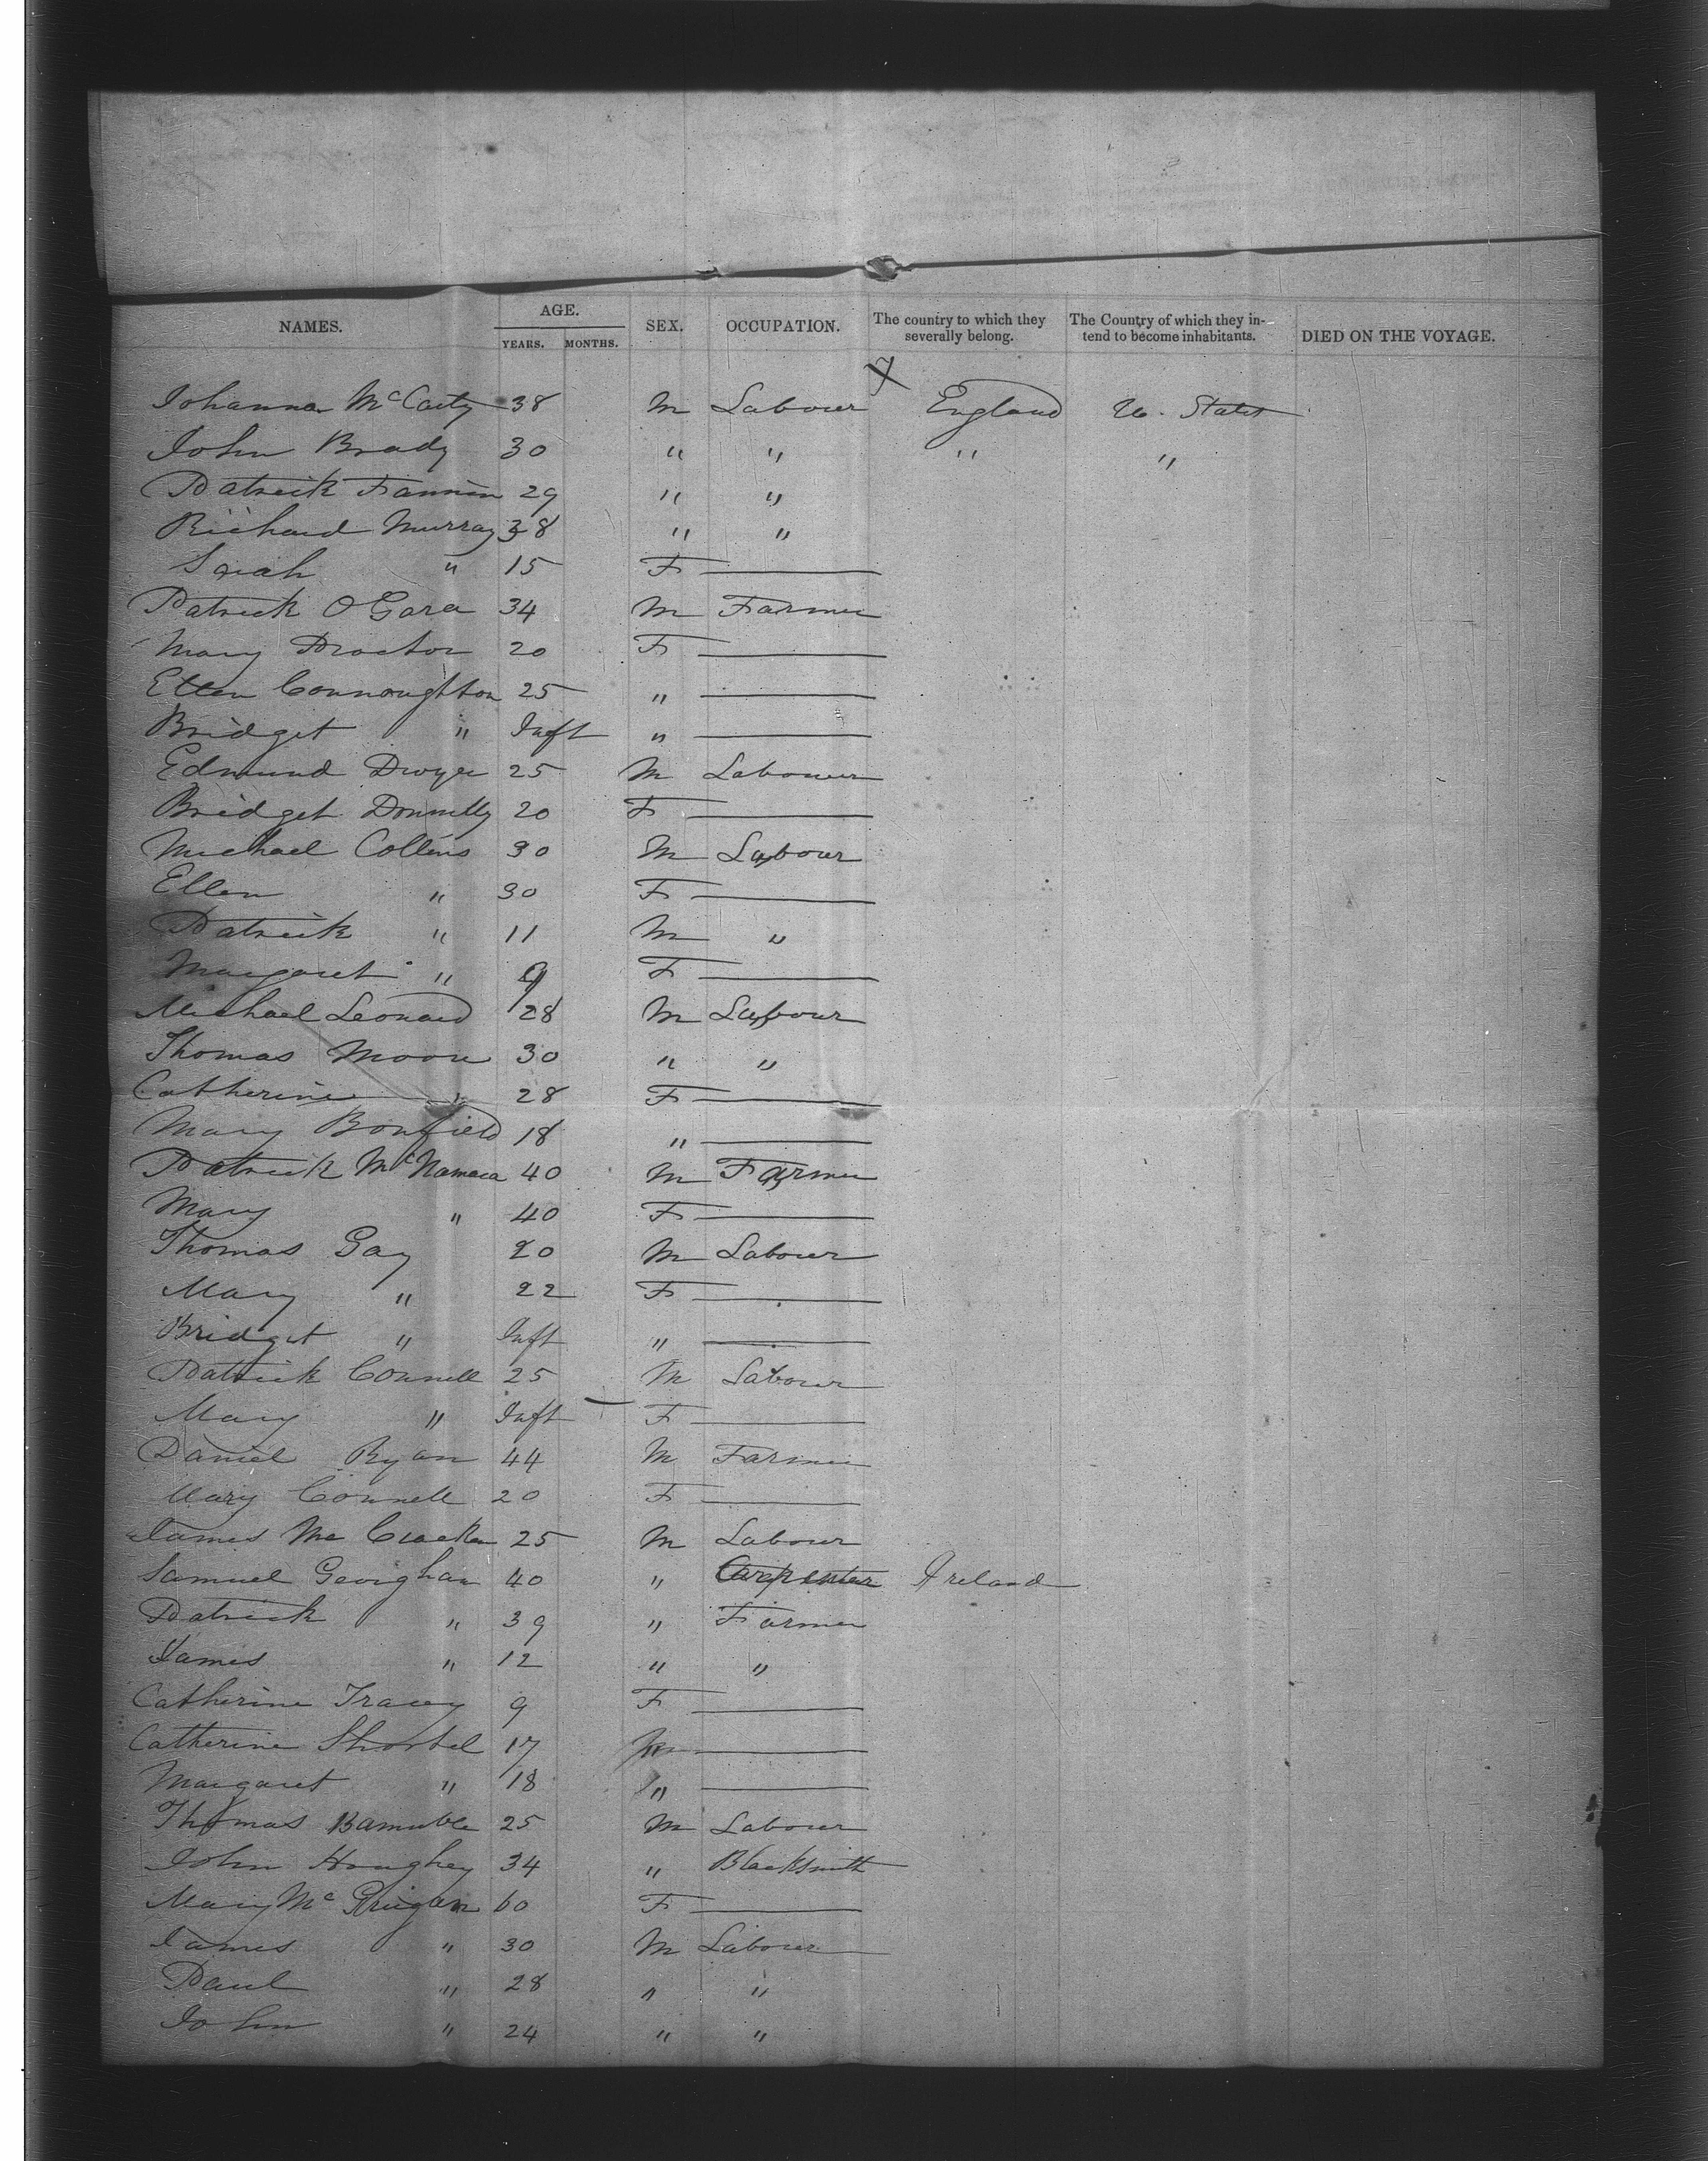 NAMES. AGE. YEARS. MONTHS. SEX. OCCUPATION. The country to which they severally belong. The Country of which they intend to become inhabitants. DIED ON THE VOYAGE.
7
Johanna McCarty 38 M Labour England U. States
John Brady 30 " " " "
Patrick Fannin 29 " "
Richard Murray 38 " "
Sarah " 15 F —
Patrick O Gara 34 M Farmer
Mary Proctor 20 F —
Ellen Connoughton 25 " —
Bridget " Inft " —
Edmund Dwyer 25 M Labourer
Bridget Donnelly 20 F —
Michael Collins 30 M Labour
Ellen " 30 F —
Patrick " 11 M "
Margaret " 9 F —
Michael Leonard 28 M Labour
Thomas Moore 30 " "
Catherine " 28 F —
Mary Bonfield 18 " —
Patrick McNamara 40 M Farmer
Mary " 40 F —
Thomas Gay 20 M Labour
Mary " 22 F —
Bridget " Inft " —
Patrick Connell 25 M Labour
Mary " Inft F —
Daniel Ryan 44 M Farmer
Mary Connell 20 F —
James Mc Cracken 25 M Labour
Samuel Geoighan 40 " Carpenter Ireland
Patrick " 39 " Farmer
James " 12 " "
Catherine Tracey 9 F —
Catherine Shortel 17 " —
Margaret " 18 " —
Thomas 25 M Labour
John Haughey 34 " Blacksmith
Mary Mc 60 F —
James " 30 M Labour
Paul " 28 " "
John " 24 " "